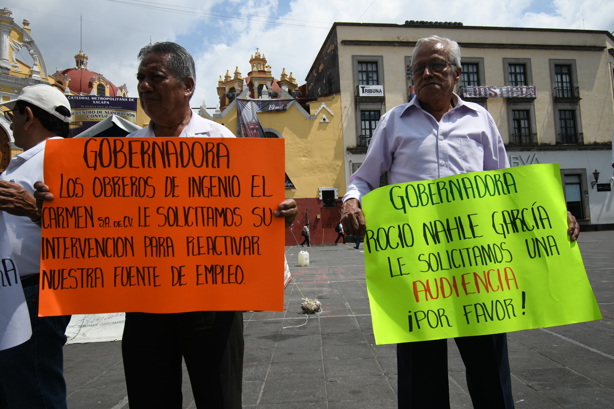 GOBERNADORA
LOS OBREROS DE INGENIO EL
CARMEN S.A. DE C.V. LE SOLICITAMOS SU
INTERVENCIÓN PARA REACTIVAR
NUESTRA FUENTE DE EMPLEO.
GOBERNADORA
ROCIO NAHLE GARCÍA
LE SOLICITAMOS UNA
AUDIENCIA
¡POR FAVOR!
TRIBUNA
XALAPA